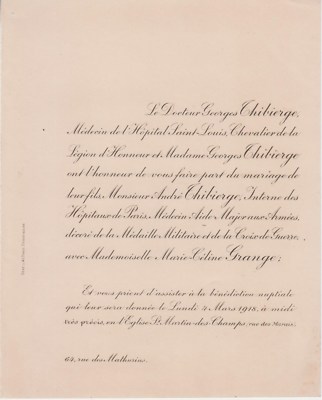 Le Docteur Georges Thibierge,
Médecin de l'Hôpital Saint-Louis, Chevalier de la
Légion d'Honneur et Madame Georges Thibierge
ont l'honneur de vous faire part du mariage de
leur fils, Monsieur André Thibierge, Interne des
Hôpitaux de Paris, Médecin Aide-Major aux Armées,
décoré de la Médaille Militaire et de la Croix de Guerre,
avec Mademoiselle Marie-Céline Grange;
Et vous prient d'assister à la bénédiction nuptiale
qui leur sera donnée le Lundi 4 Mars 1918, à midi
très précis, en l'Église St Martin-des-Champs, rue des Marais.
64, rue des Mathurins.